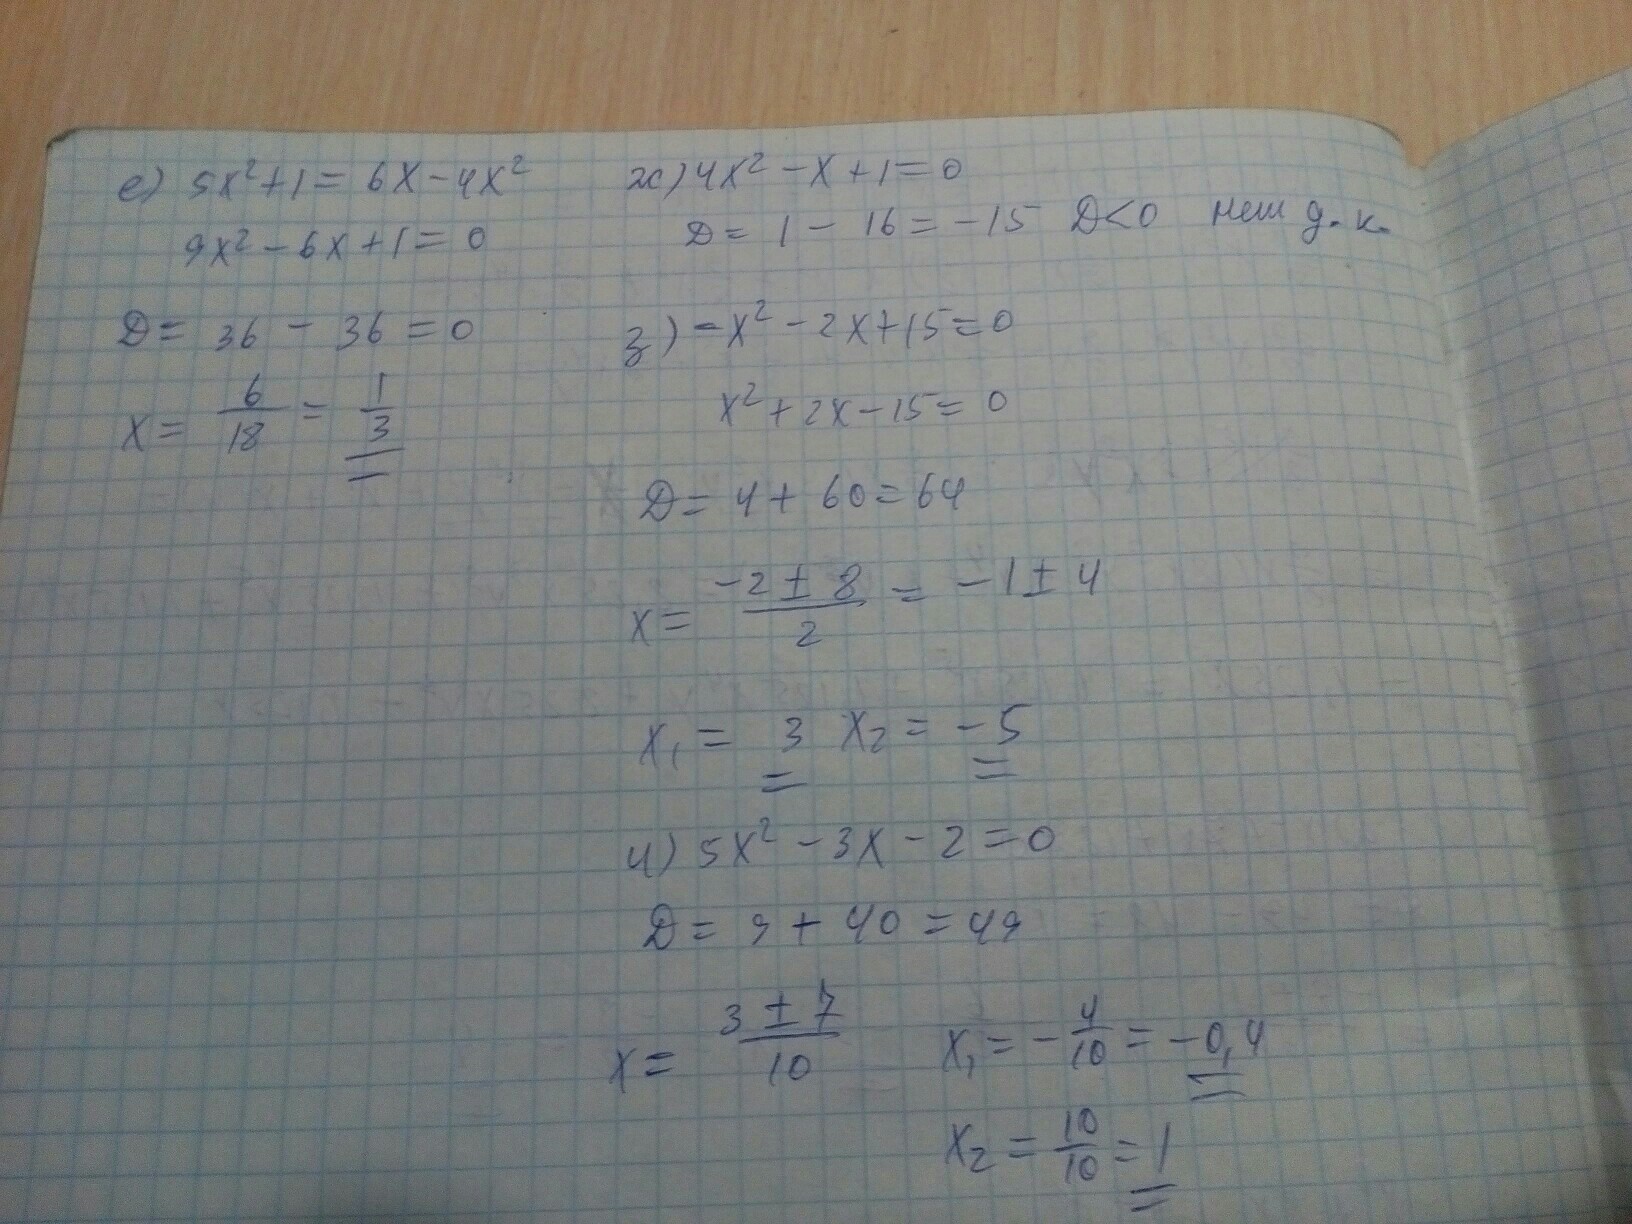 е) 5x²+1=6x-4x²
9x²-6x+1=0
D=36-36=0
x=6/18=1/3
ж) 4x²-x+1=0
D=1-16=-15 D<0 нет д.к.
з) -x²-2x+15=0
x²+2x-15=0
D=4+60=64
x=(-2±8)/2=-1±4
x₁=3 x₂=-5
и) 5x²-3x-2=0
D=9+40=49
x=(3±7)/10 x₁=-4/10=-0,4
x₂=10/10=1